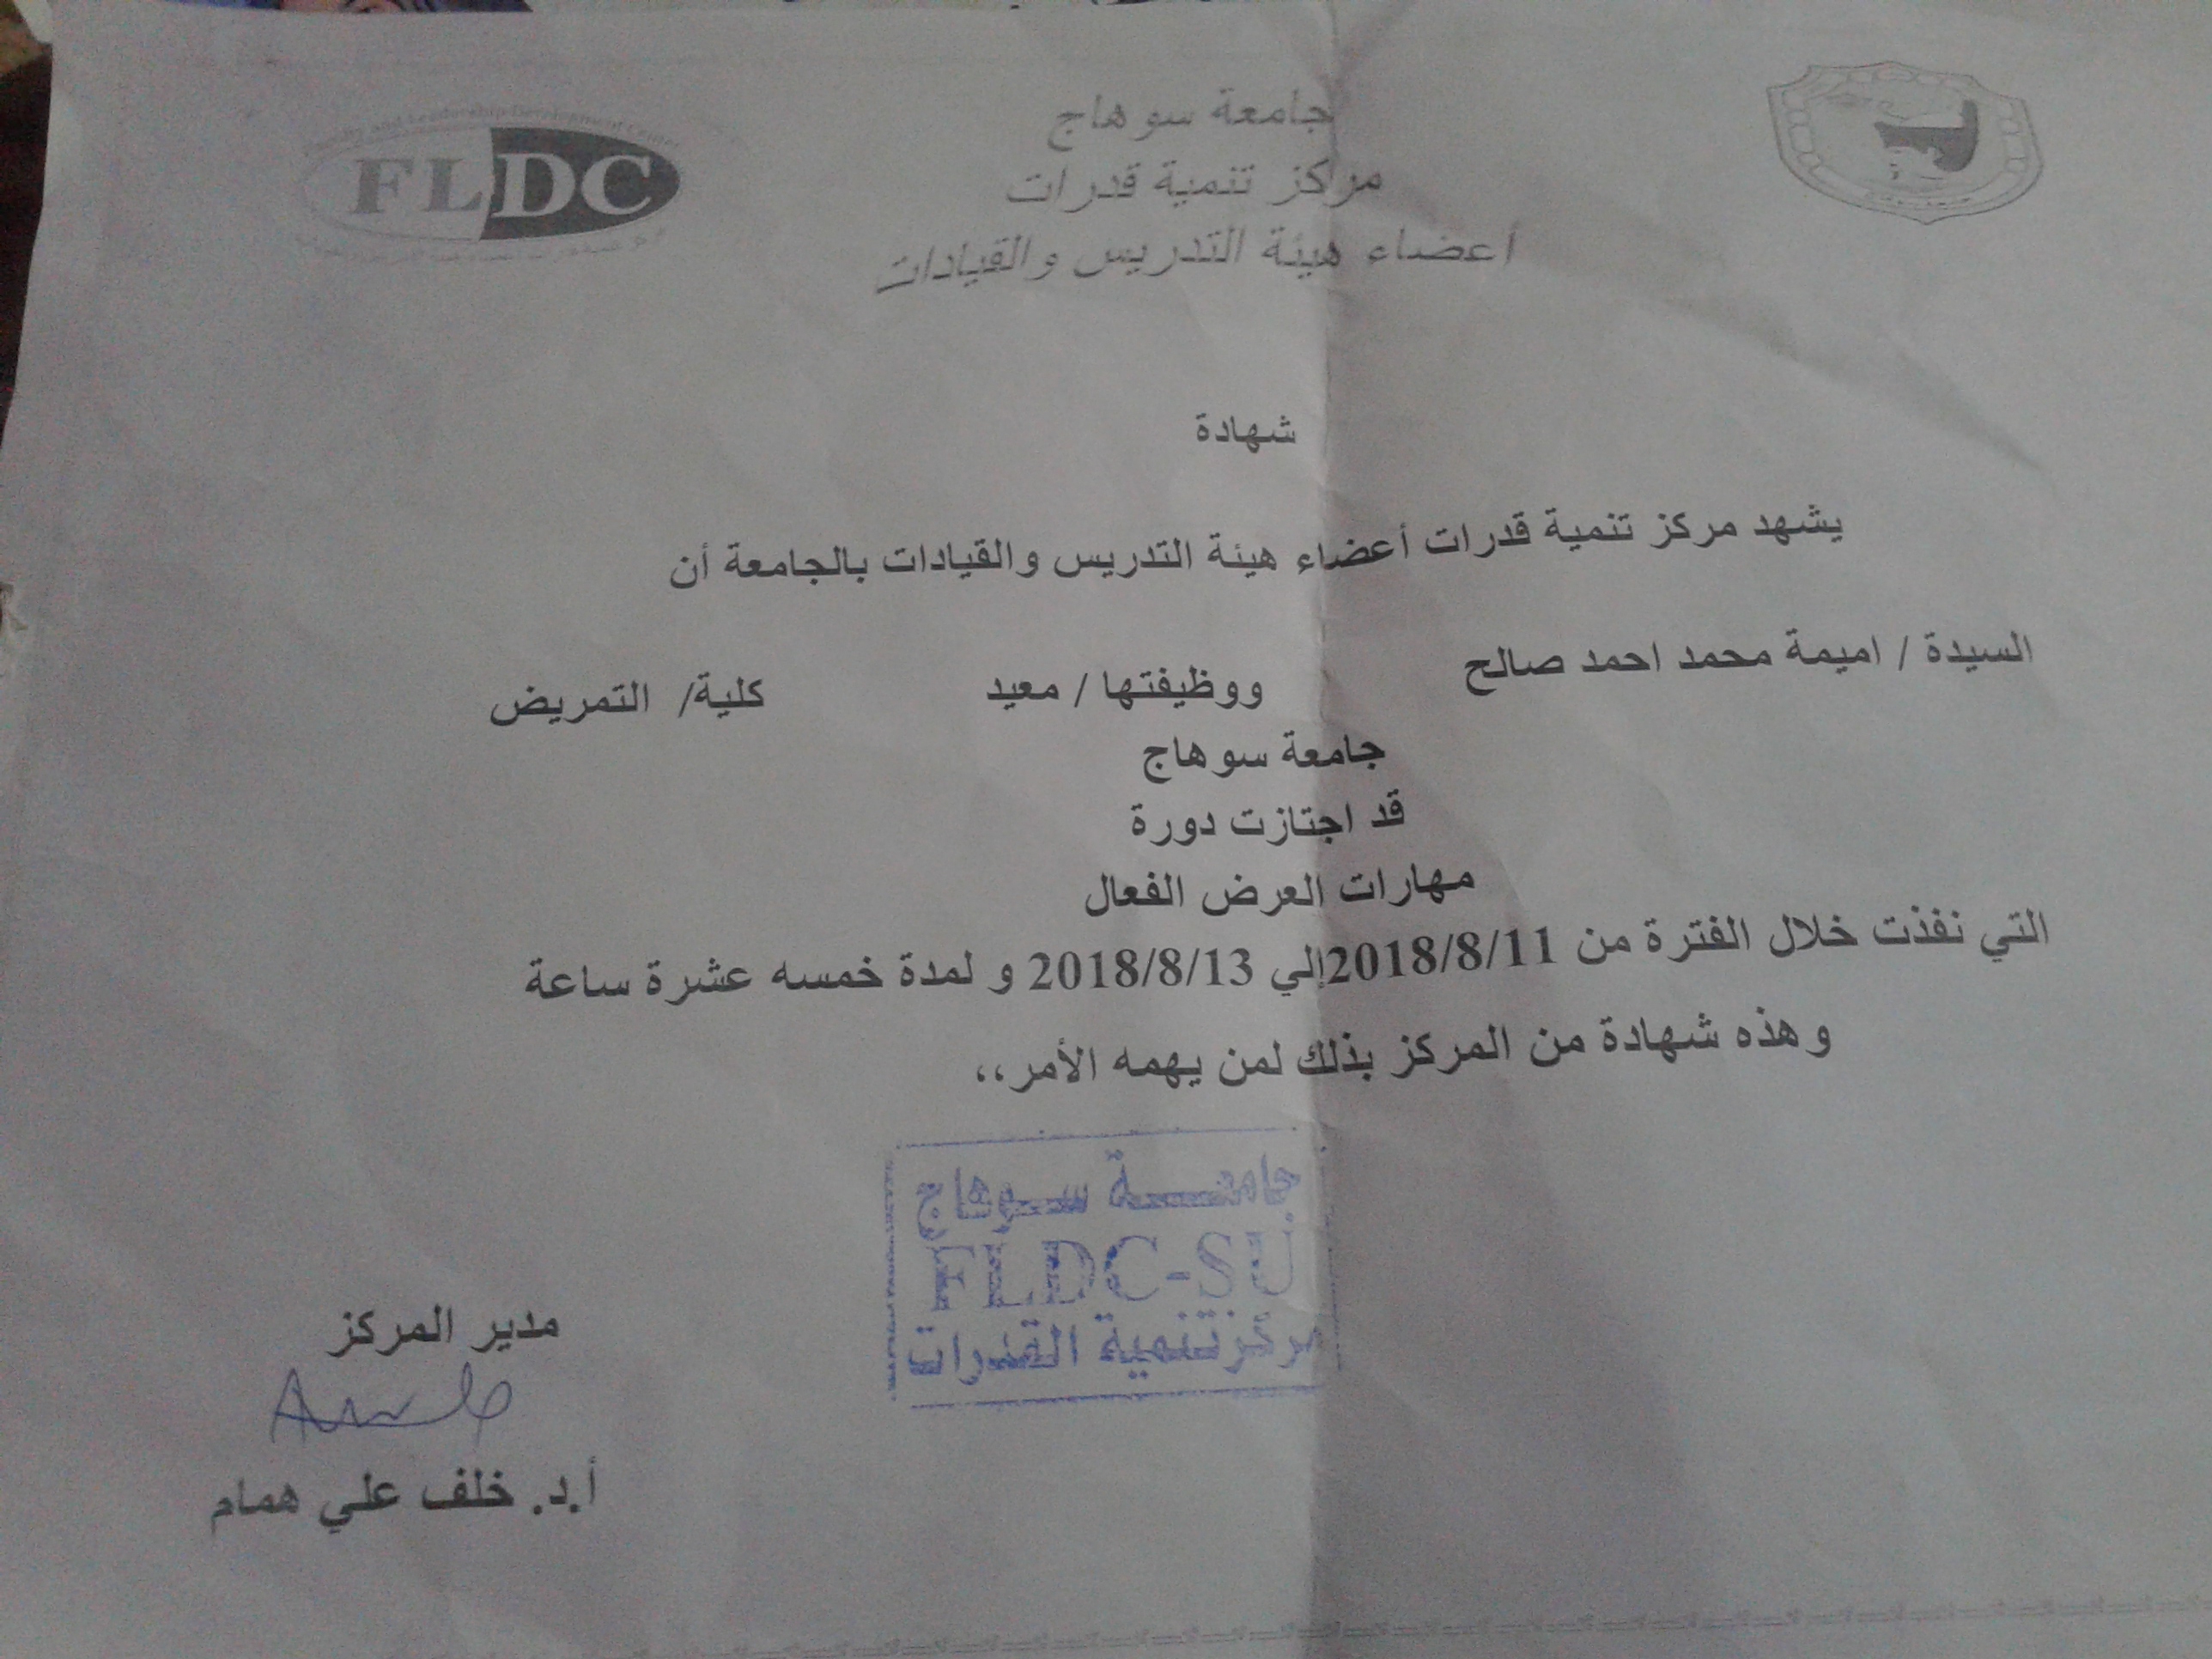 جامعة سوهاج
مركز تنمية قدرات
أعضاء هيئة التدريس والقيادات
FLDC
شهادة
يشهد مركز تنمية قدرات أعضاء هيئة التدريس والقيادات بالجامعة أن
السيدة / اميمة محمد احمد صالح ووظيفتها / معيد كلية/ التمريض
جامعة سوهاج
قد اجتازت دورة
مهارات العرض الفعال
التي نفذت خلال الفترة من 2018/8/11إلي 2018/8/13 و لمدة خمسه عشرة ساعة
وهذه شهادة من المركز بذلك لمن يهمه الأمر،،
جامعة سوهاج
FLDC-SU
مركز تنمية القدرات
مدير المركز
أ.د. خلف علي همام